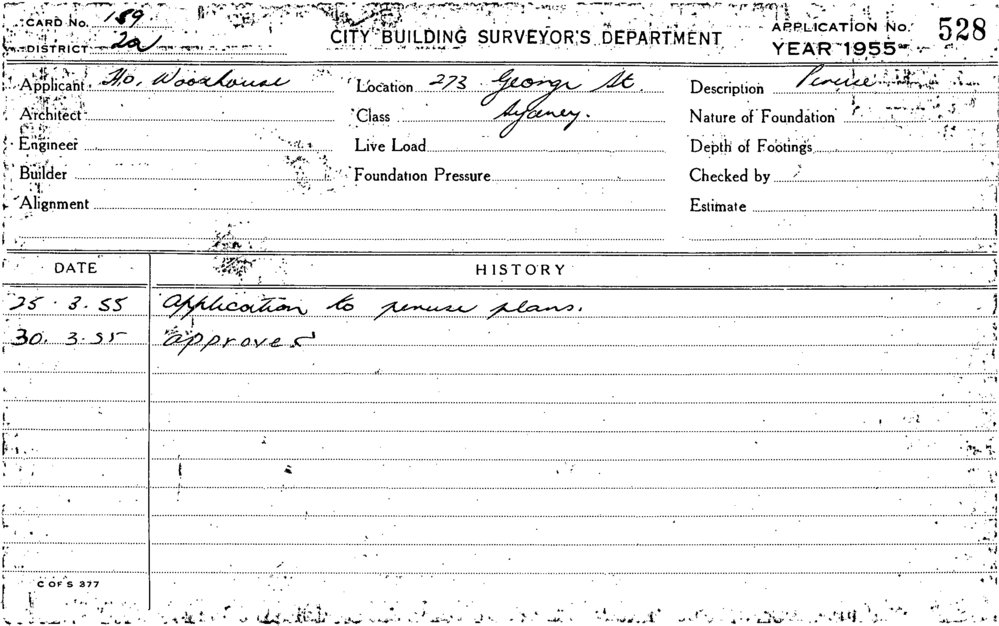 CARD No. 189
DISTRICT 2a
CITY BUILDING SURVEYOR'S DEPARTMENT
APPLICATION No. 528
YEAR 1955
Applicant Woodhouse
Location 273 George St.
Description Peruse
Architect
Class Sydney.
Nature of Foundation
Engineer
Live Load
Depth of Footings
Builder
Foundation Pressure
Checked by
Alignment
Estimate
DATE HISTORY
25. 3. 55 Application to peruse plans.
30. 3. 55 approved
C OF S 377